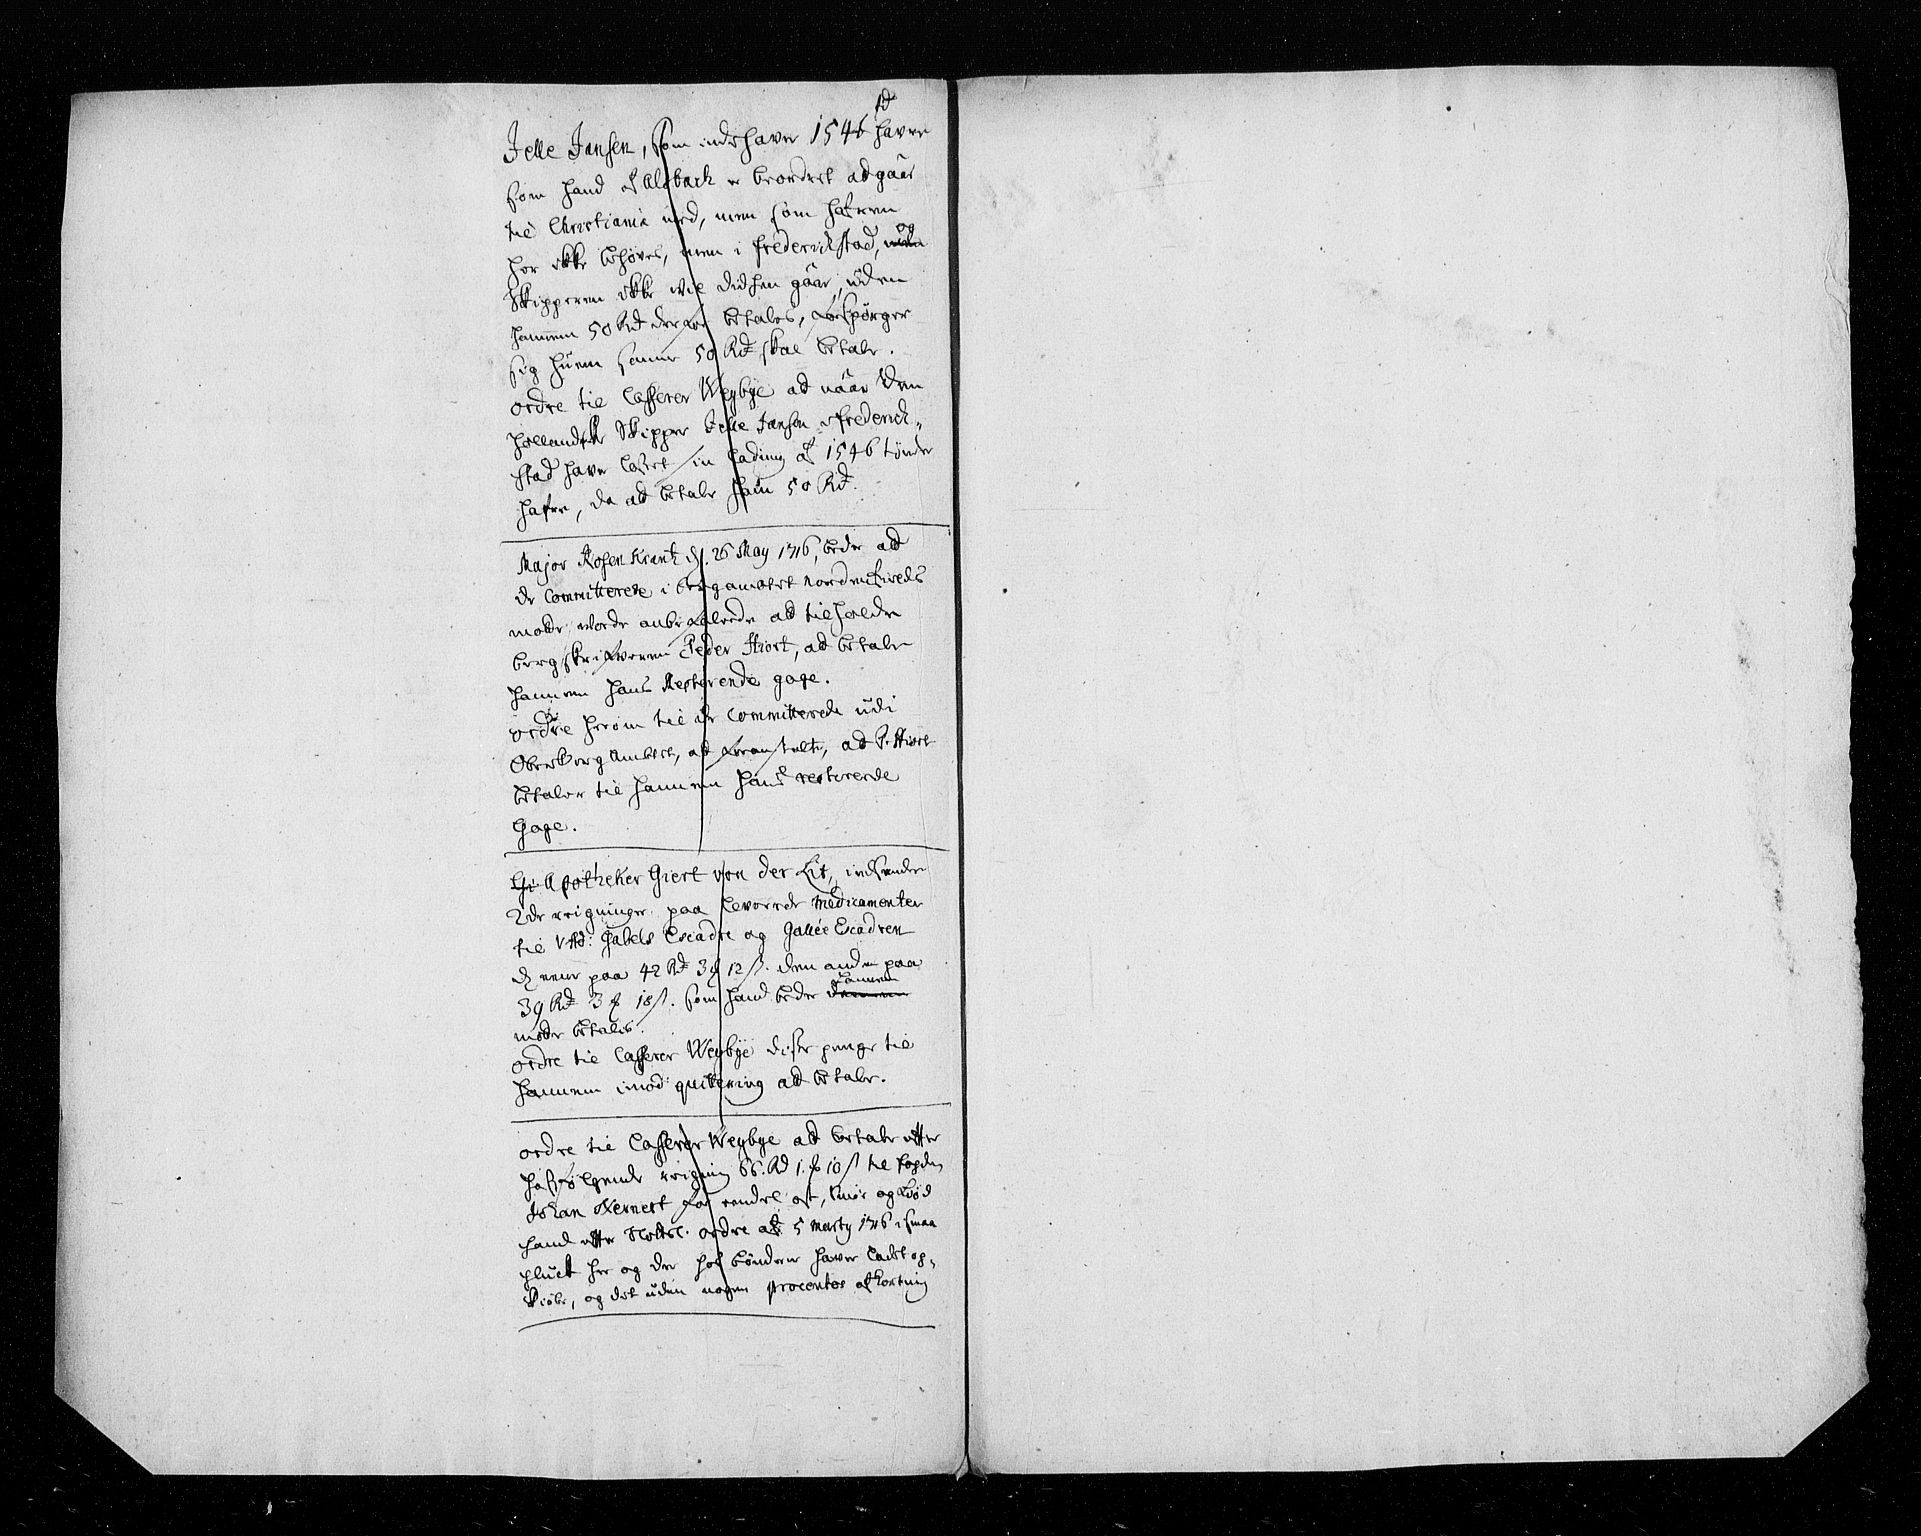 td
Jelle Jansen, som indehaver 1546 havre
som hand af Alsbach er beordret ad gaar
til Christiania med, men som hafren
her ikke behøves, men i Frederichstad, og
Skipperen ikke vil didhen gaar, uden
hannem 50 Rd derfor betales, forspørger
sig huem samme 50 Rd skal betale.
ordre til Casserer Weybye ad naar den
hollandske Skipper Jelle Jansen i Frederich-
stad haver losset sin Lading af 1546 tønder
hafre, da ad betale ham 50 Rd.
Major Rosenkrantz d. 26 May 1716, beder ad
de Committerede i bergambtet nordenfields
motte worde anbefalede ad tilholde
bergskrifveren Peder Hiort, ad betale
hannem hans Resterende gage.
ordre herom til de Committerede udi
OberbergAmbtet, ad foranstalte, ad P. Hiort
betaler til hannem hans resterende
Gage.
Gi Apotheker Giert von der Lit, indsender
2de reigninger paa leverede Medicamenter
til V Ad: Gabels Escadre og Gallée Escadren
d eene paa 42 Rd 3 12 ß. den anden paa
hannem
39 Rd 3 18 ß. som hand beder
motte betales.
ordre til Casserer Weybye disse penge til
hannem imod quitering ad betale.
ordre til Casserer Weybye ad betale efter
hosfølgende reigning 66. Rd 1. 10 ß til fogden
Johan Wernert for eendel ost, smør og kiød
hand efter Slotsl. ordre af 5 Marty 1716 i smaa
pluck her og der hos bønderne haver ladet op-
kiøbe, og det uden nogen procentes afkortning